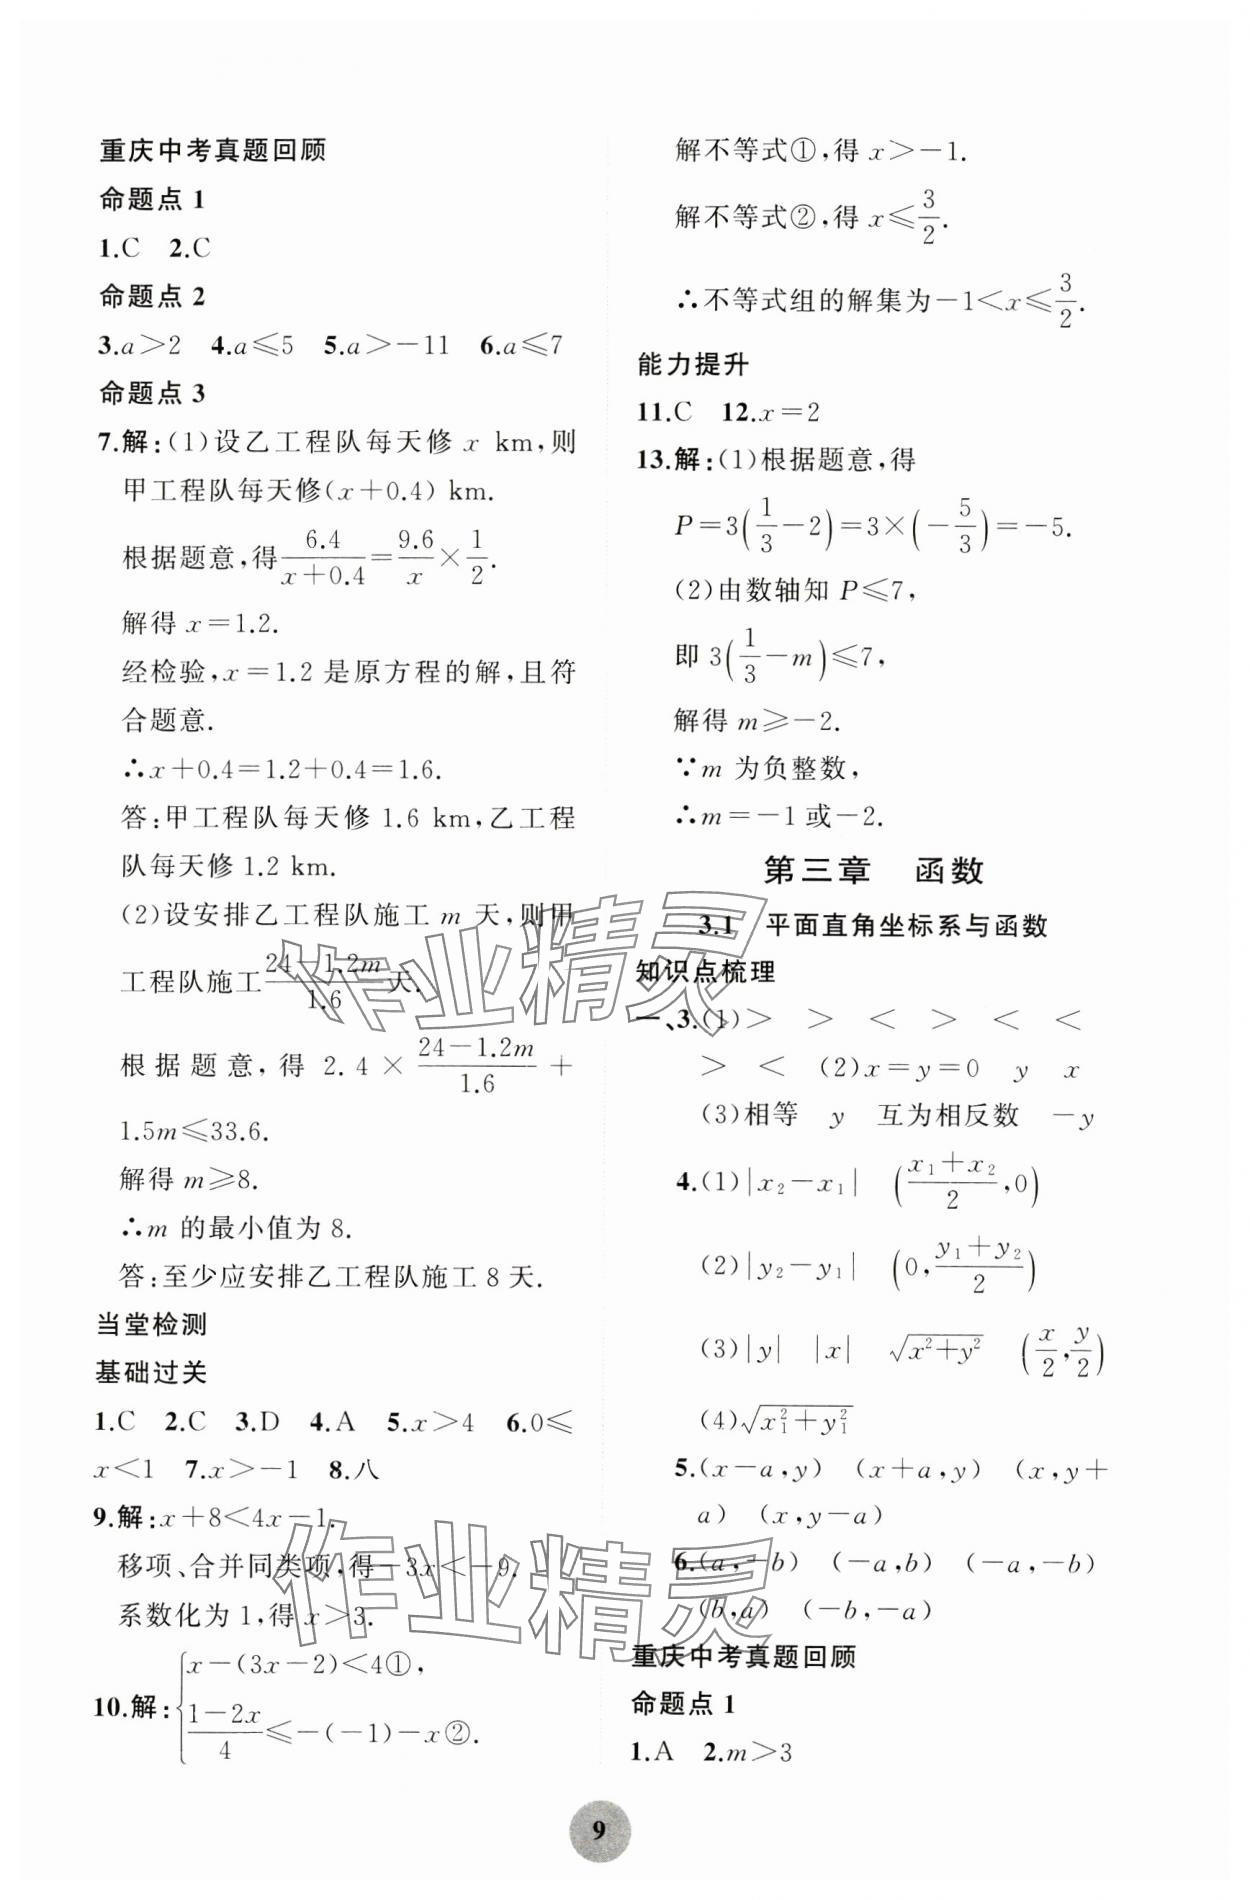 重庆中考真题回顾
命题点 1
1.C 2.C
命题点 2
3.a>2 4.a≤5 5.a>-11 6.a≤7
命题点 3
7.解:(1)设乙工程队每天修 x km,则
甲工程队每天修(x+0.4) km.
根据题意,得 6.4/(x+0.4) = 9.6/x × 1/2.
解得 x=1.2.
经检验,x=1.2 是原方程的解,且符
合题意.
∴x+0.4=1.2+0.4=1.6.
答:甲工程队每天修 1.6 km,乙工程
队每天修 1.2 km.
(2)设安排乙工程队施工 m 天,则甲
工程队施工 (24-1.2m)/1.6 天.
根据题意,得 2.4 × (24-1.2m)/1.6 +
1.5m≤33.6.
解得 m≥8.
∴m 的最小值为 8.
答:至少应安排乙工程队施工 8 天.
当堂检测
基础过关
1.C 2.C 3.D 4.A 5.x>4 6.0≤
x<1 7.x>-1 8.八
9.解:x+8<4x-1.
移项、合并同类项,得-3x<-9.
系数化为 1,得 x>3.
10.解:{x-(3x-2)<4①,
(1-2x)/4≤-(-1)-x②.
解不等式①,得 x>-1.
解不等式②,得 x≤3/2.
∴不等式组的解集为-1<x≤3/2.
能力提升
11.C 12.x=2
13.解:(1)根据题意,得
P=3(1/3-2)=3×(-5/3)=-5.
(2)由数轴知 P≤7,
即 3(1/3-m)≤7,
解得 m≥-2.
∵m 为负整数,
∴m=-1 或-2.
第三章 函数
3.1 平面直角坐标系与函数
知识点梳理
一、3.(1)> > < > < <
> < (2)x=y=0 y x
(3)相等 y 互为相反数 -y
4.(1)|x₂-x₁| ((x₁+x₂)/2,0)
(2)|y₂-y₁| (0,(y₁+y₂)/2)
(3)|y| |x| √(x²+y²) (x/2,y/2)
(4)√(x₁²+y₁²)
5.(x-a,y) (x+a,y) (x,y+
a) (x,y-a)
6.(a,-b) (-a,b) (-a,-b)
(b,a) (-b,-a)
重庆中考真题回顾
命题点 1
1.A 2.m>3
9
作业精灵
作业精灵